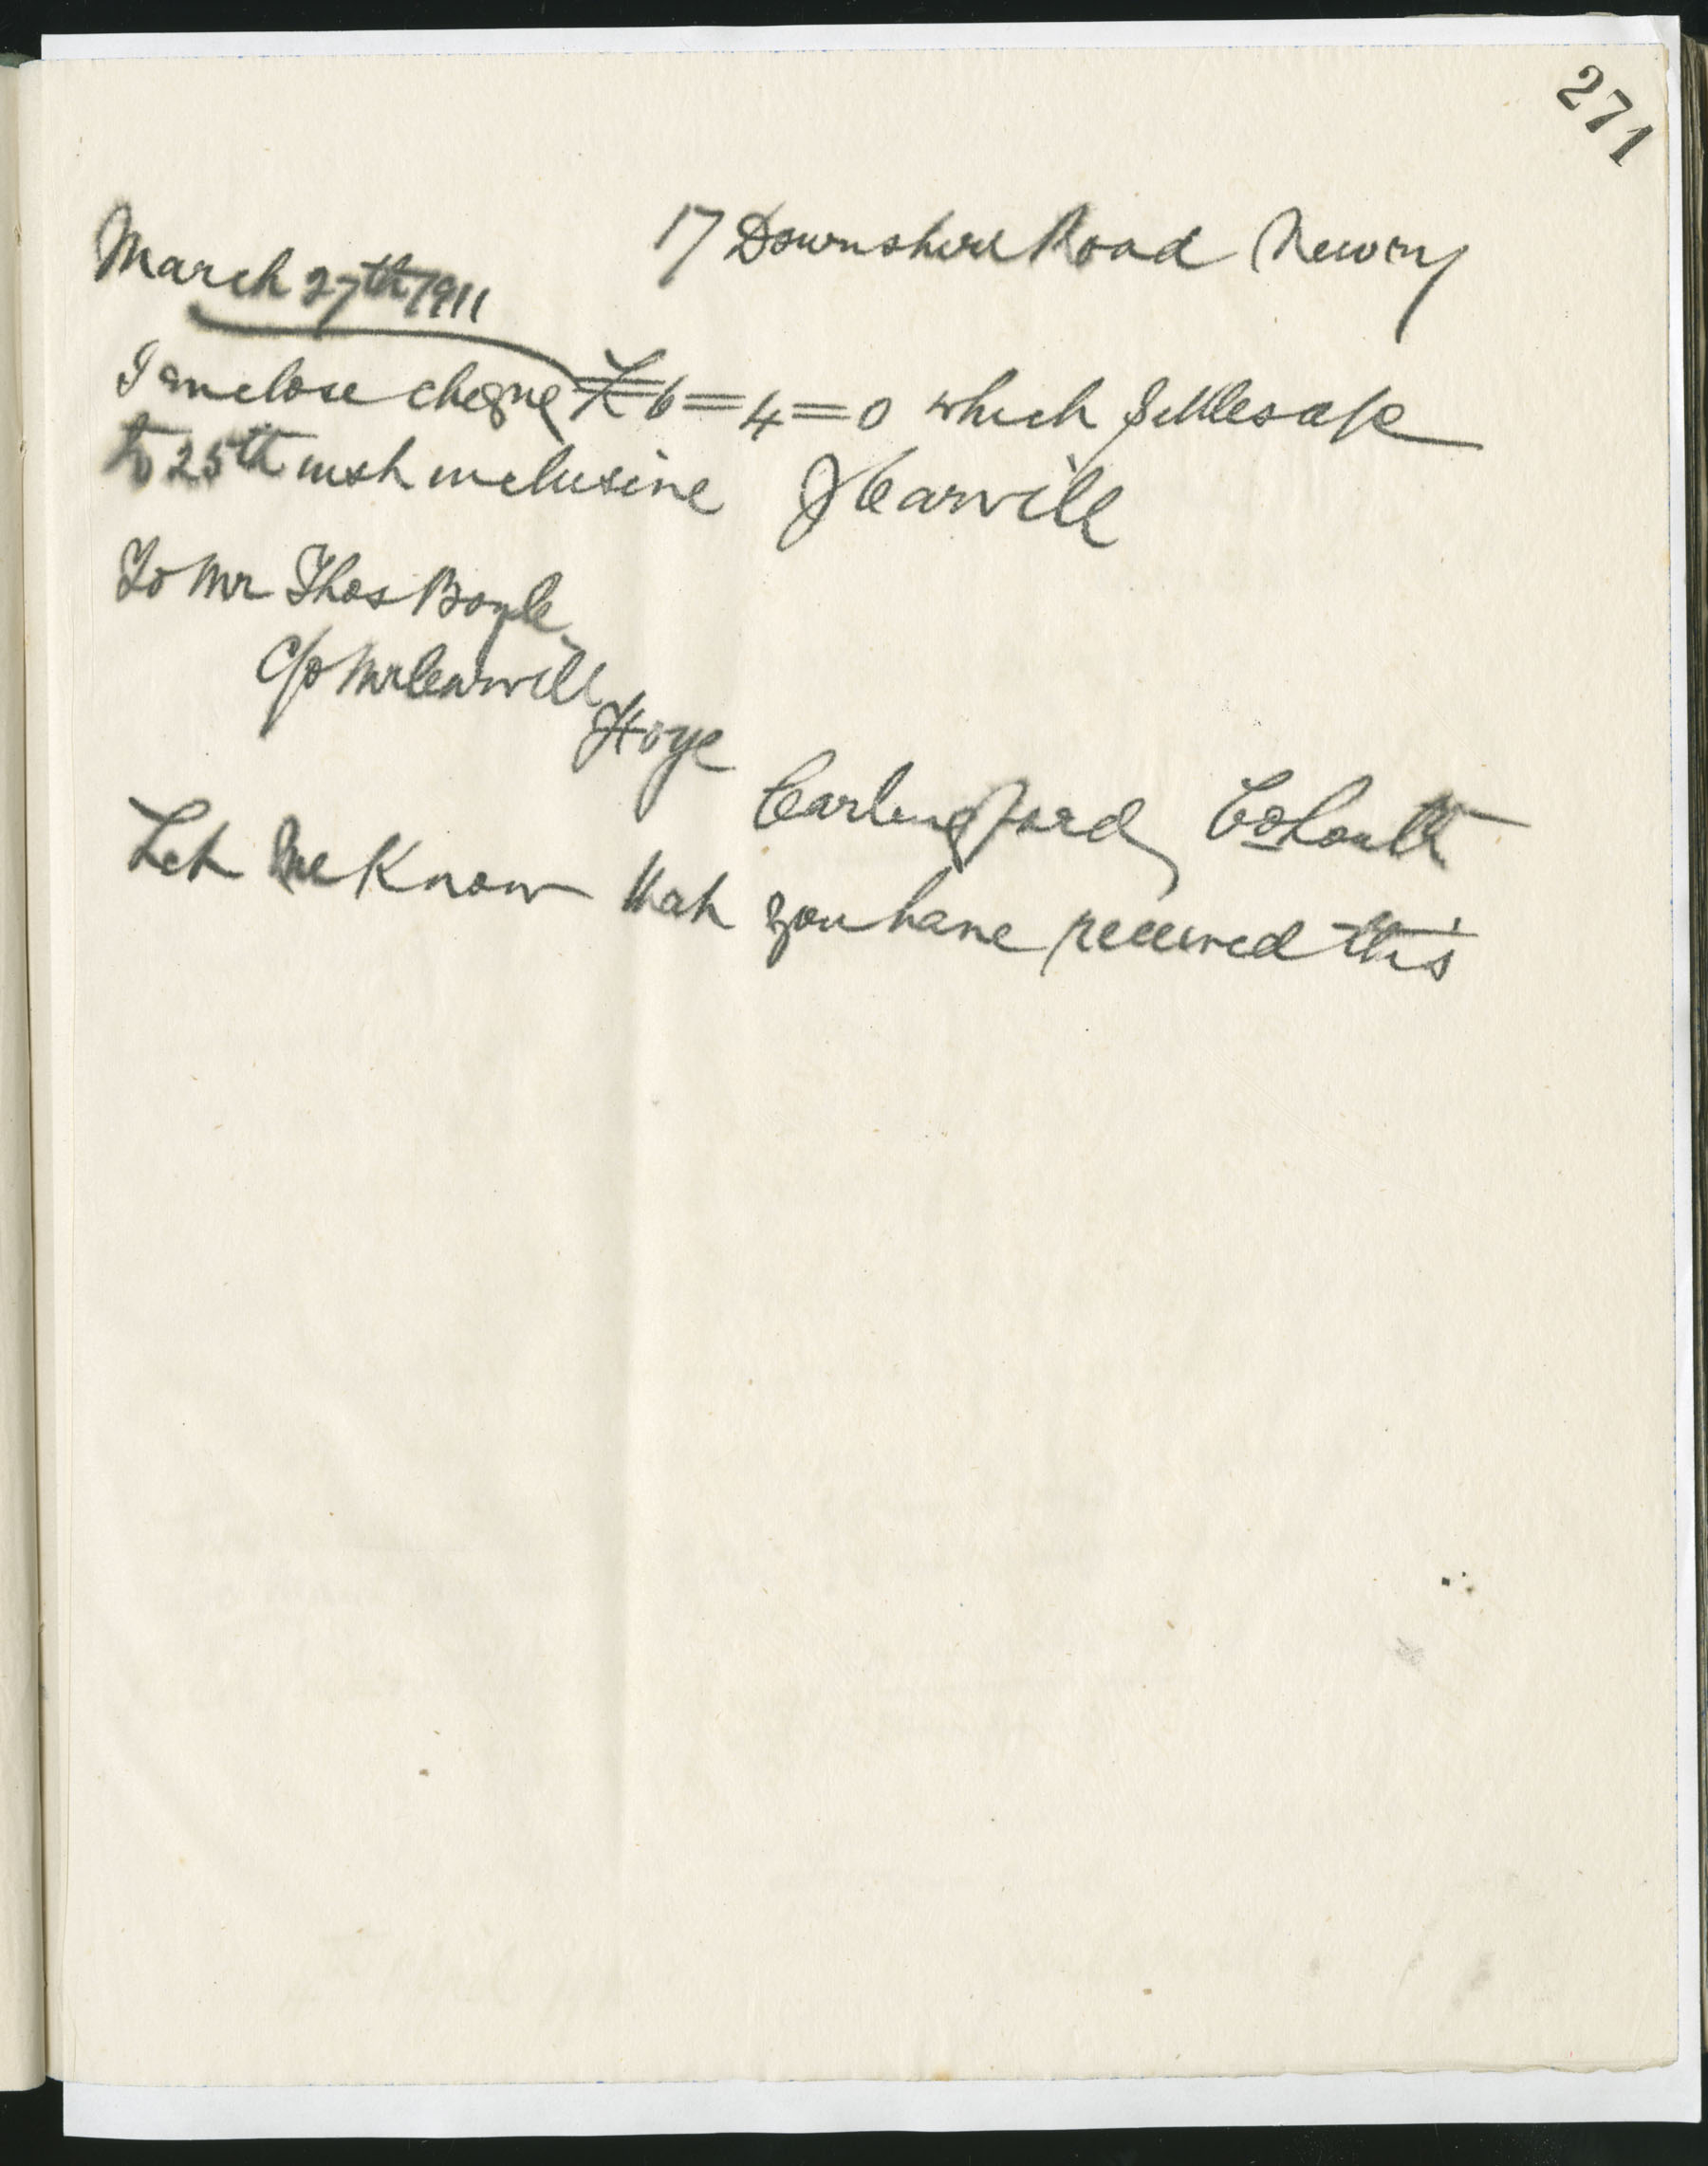 271
17 Downshire Road Newry
March 27th 1911
I enclose cheque £6=4=0 which settles a/c
to 25th inst inclusive J Carvill
To Mr Thos Boyle
C/o Mr Carvill
Hoye
Carlingford Co Louth
Let me know that you have received this